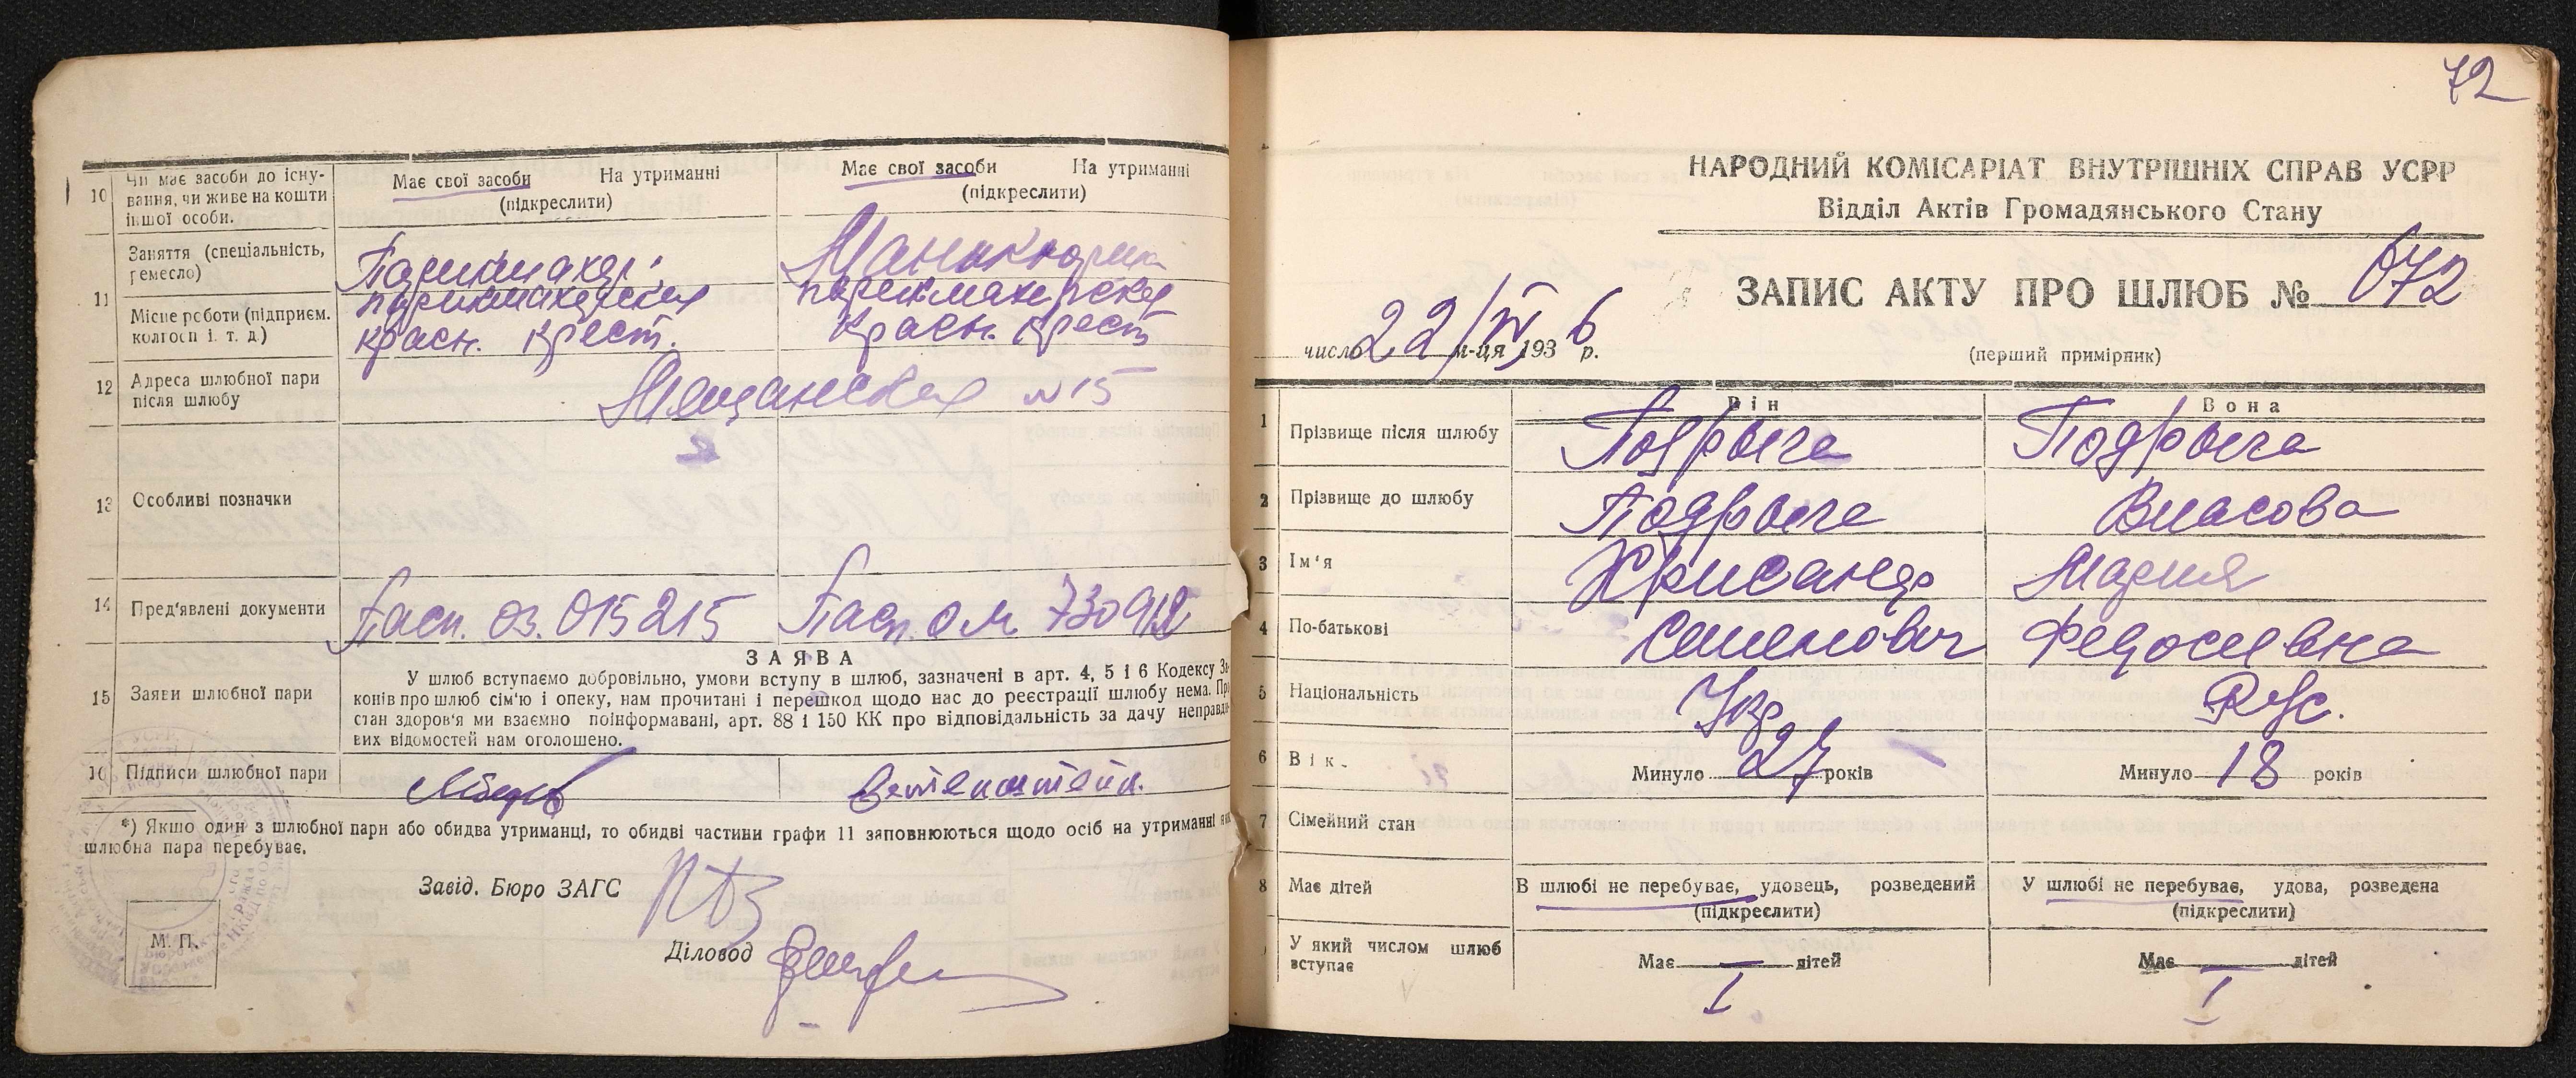 10 Чи має засоби до існу-
вання, чи живе на кошти
іншої особи.
Має свої засоби На утриманні
(підкреслити)
Має свої засоби На утриманні
(підкреслити)
11 Заняття (спеціальність,
ремесло)
Парикмахер
Маникюрша
Місце роботи (підприєм.
колгосп і. т. д.)
парикмахерская
красн. крест.
парикмахерская
Красн. крест
12 Адреса шлюбної пари
після шлюбу
Мещанская №15
13 Особливі позначки
14 Пред'явлені документи
Пасп. оз. 015215
Пасп. ом 730912
15 Заяви шлюбної пари
ЗАЯВА
У шлюб вступаємо добровільно, умови вступу в шлюб, зазначені в арт. 4, 5 і 6 Кодексу За-
конів про шлюб сім'ю і опеку, нам прочитані і перешкод щодо нас до реєстрації шлюбу нема. Про
стан здоров'я ми взаємно поінформавані, арт. 88 і 150 КК про відповідальність за дачу неправди-
вих відомостей нам оголошено.
16 Підписи шлюбної пари
*) Якшо один з шлюбної пари або обидва утриманці, то обидві частини графи 11 заповнюються щодо осіб на утриманні яких
шлюбна пара перебуває.
Завід. Бюро ЗАГС
Діловод
М. П.
72
НАРОДНИЙ КОМІСАРІАТ ВНУТРІШНІХ СПРАВ УСРР
Відділ Актів Громадянського Стану
ЗАПИС АКТУ ПРО ШЛЮБ № 672
число 22/VI м-ця 1936 р.
(перший примірник)
Він Вона
1 Прізвище після шлюбу Подрыга Подрыга
2 Прізвище до шлюбу Подрыга Власова
3 Ім'я Хрисанф Мария
4 По-батькові Семенович Федосеевна
5 Національність Укр Рус.
6 Вік. Минуло 27 років Минуло 18 років
7 Сімейний стан
8 Має дітей
В шлюбі не перебуває, удовець, розведений
(підкреслити)
У шлюбі не перебуває, удова, розведена
(підкреслити)
У який числом шлюб
вступає
Має — дітей
I
Має — дітей
I